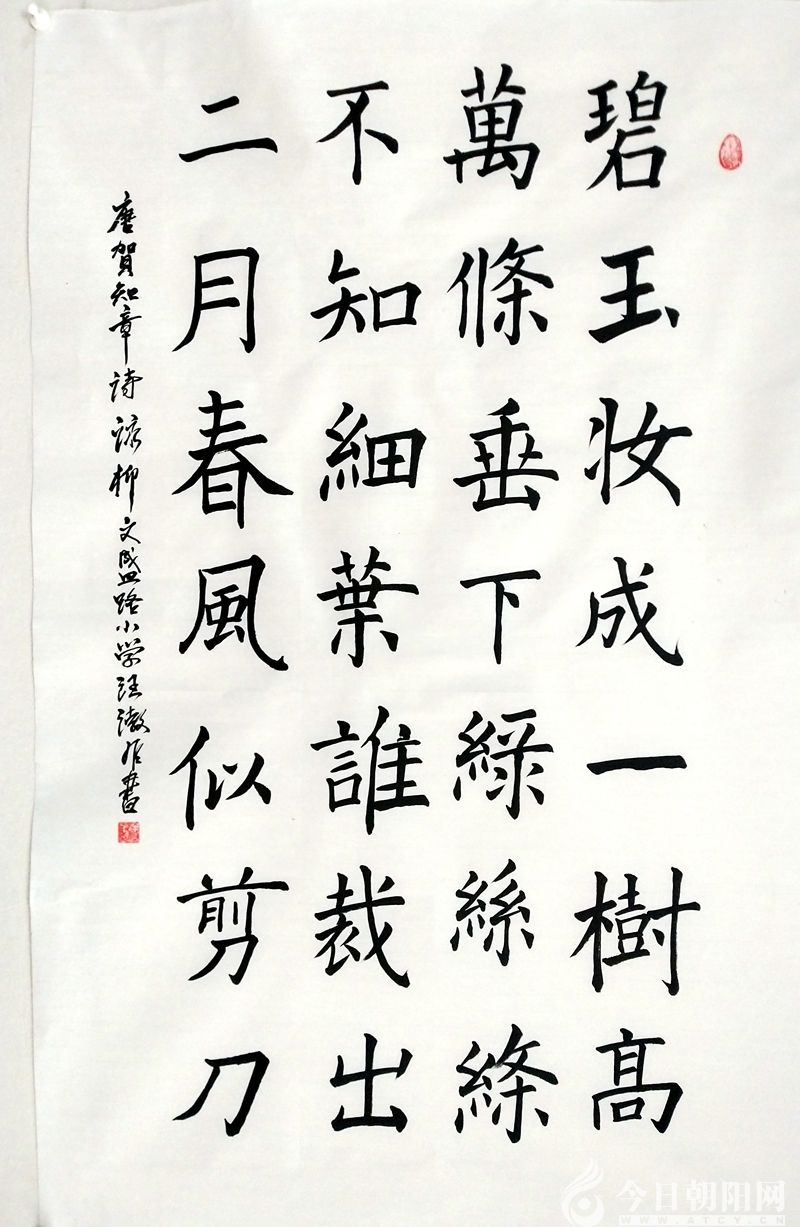 碧玉妆成一樹髙
萬條垂下綠絲絛
不知細葉誰裁出
二月春風似剪刀
唐賀知章诗詠柳文盛路小学汪書
今日朝阳网
WWW.ATCY.CN